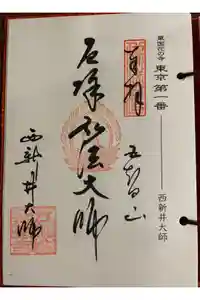 東国花の寺 東京 第一番 西新井大師
奉拝
五智山
厄除弘法大師
西新井大師